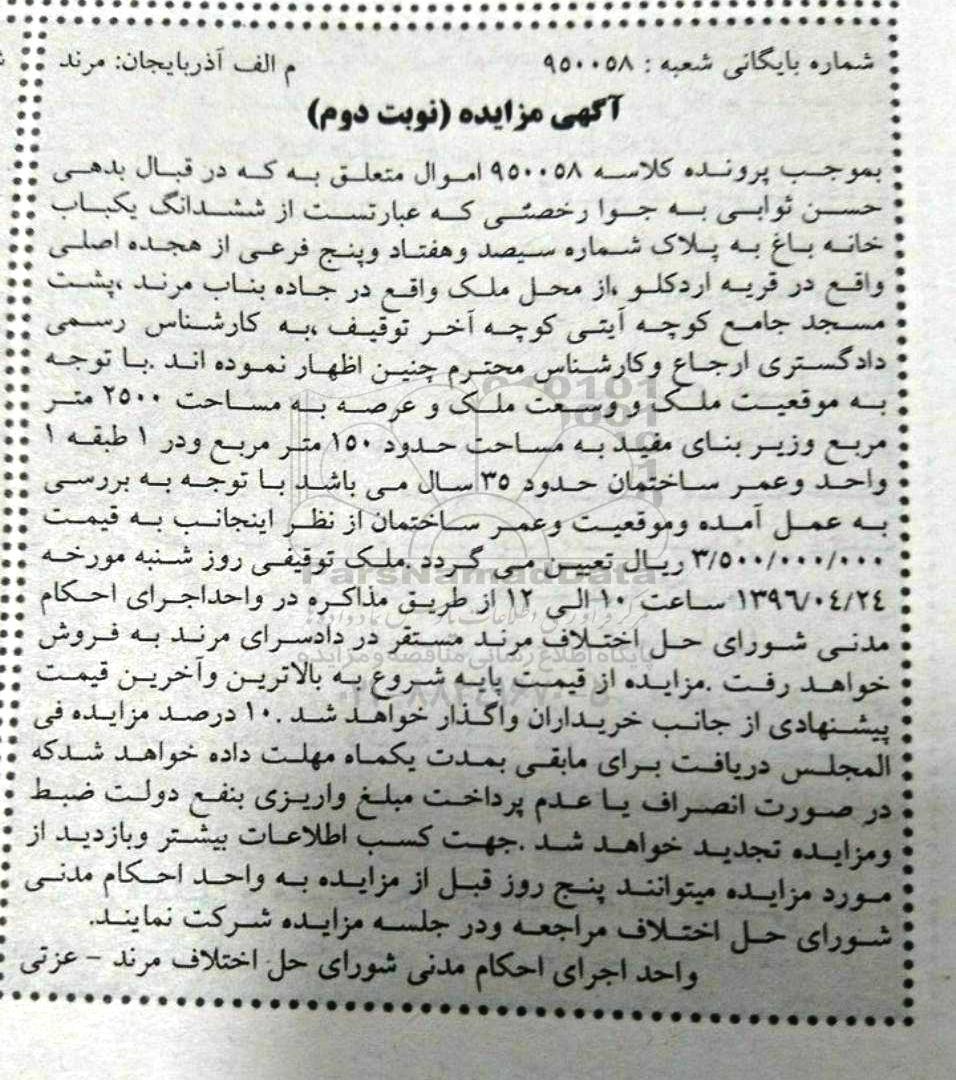 شماره بایگانی شعبه : ۹۵۰۰۵۸
م الف آذربایجان: مرند
آگهی مزایده (نوبت دوم)
بموجب پرونده کلاسه ۹۵۰۰۵۸ اموال متعلق به که در قبال بدهی
حسن ثوابی به جوا رخصتی که عبارتست از ششدانگ یکباب
خانه باغ به پلاک شماره سیصد وهفتاد وپنج فرعی از هجده اصلی
واقع در قریه اردکلو ،از محل ملک واقع در جاده بناب مرند ،پشت
مسجد جامع کوچه آیتی کوچه آخر توقیف ،به کارشناس رسمی
دادگستری ارجاع وکارشناس محترم چنین اظهار نموده اند .با توجه
به موقعیت ملک و وسعت ملک و عرصه به مساحت ۲۵۰۰ متر
مربع وزیر بنای مفید به مساحت حدود ۱۵۰ متر مربع ودر ۱ طبقه ۱
واحد وعمر ساختمان حدود ۳۵ سال می باشد با توجه به بررسی
به عمل آمده وموقعیت وعمر ساختمان از نظر اینجانب به قیمت
۳/۵۰۰/۰۰۰/۰۰۰ ریال تعیین می گردد .ملک توقیفی روز شنبه مورخه
۱۳۹۶/۰۴/۲۴ ساعت ۱۰ الی ۱۲ از طریق مذاکره در واحداجرای احکام
مدنی شورای حل اختلاف مرند مستقر در دادسرای مرند به فروش
خواهد رفت .مزایده از قیمت پایه شروع به بالاترین وآخرین قیمت
پیشنهادی از جانب خریداران واگذار خواهد شد .۱۰ درصد مزایده فی
المجلس دریافت برای مابقی بمدت یکماه مهلت داده خواهد شدکه
در صورت انصراف یا عدم پرداخت مبلغ واریزی بنفع دولت ضبط
ومزایده تجدید خواهد شد .جهت کسب اطلاعات بیشتر وبازدید از
مورد مزایده میتوانند پنج روز قبل از مزایده به واحد احکام مدنی
شورای حل اختلاف مراجعه ودر جلسه مزایده شرکت نمایند.
واحد اجرای احکام مدنی شورای حل اختلاف مرند - عزتی
ParsNamadData
پایگاه اطلاع رسانی مناقصه و مزایده